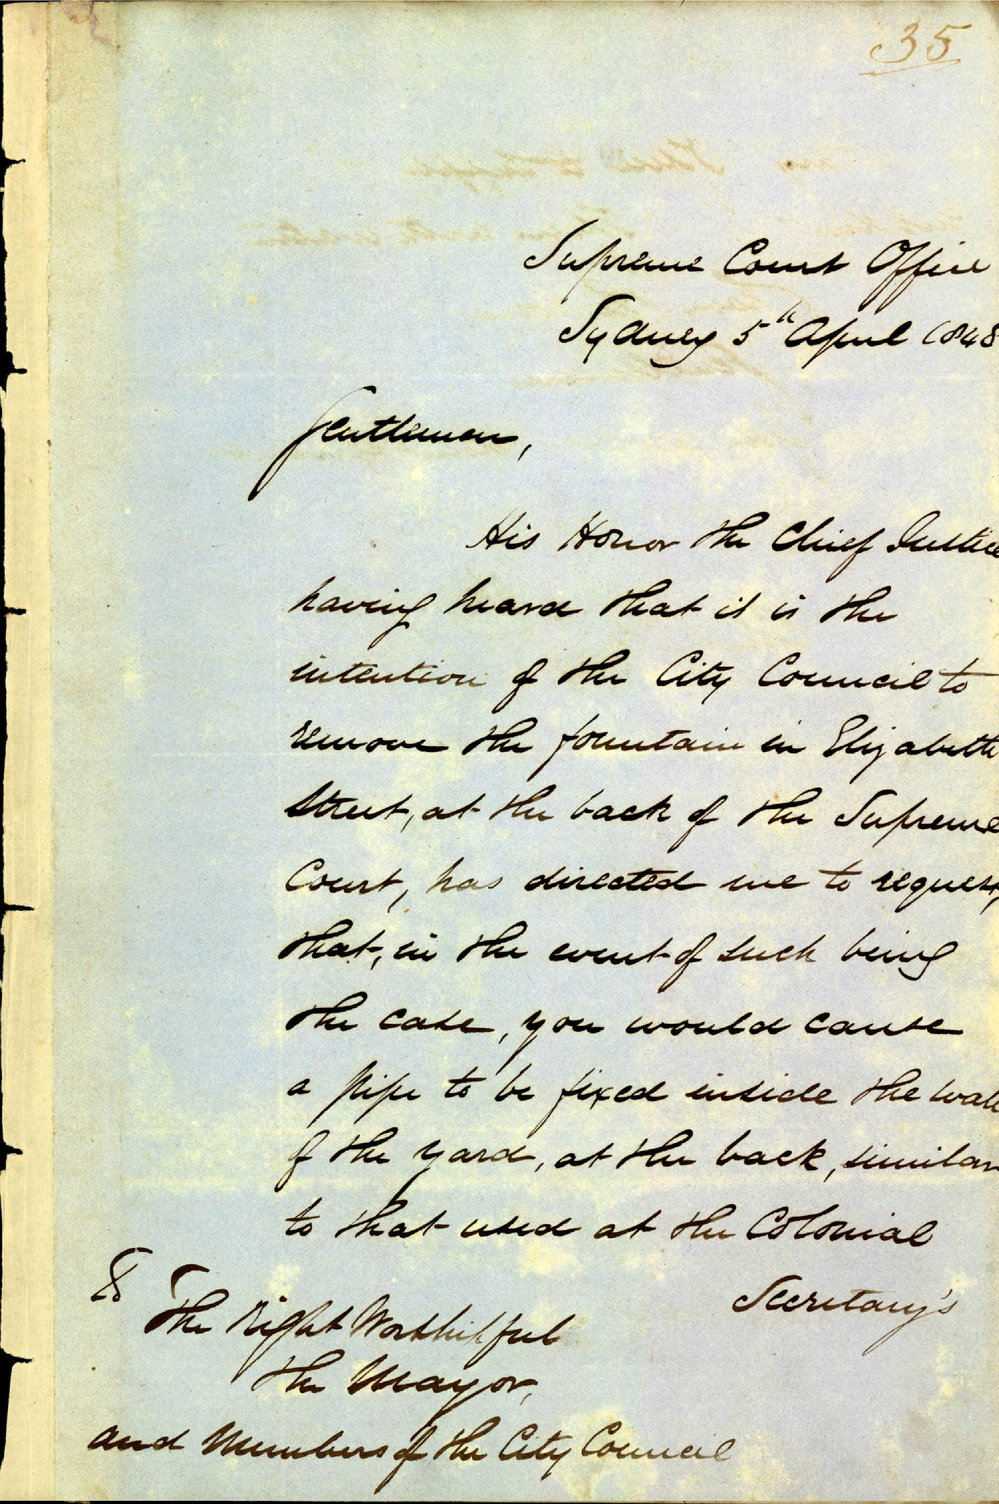 35
Supreme Court Office
Sydney 5th April 1848
Gentlemen,
His Honor the Chief Justice
having heard that it is the
intention of the City Council to
remove the fountain in Elizabeth
Street, at the back of the Supreme
Court, has directed me to request,
that, in the event of such being
the case, you would cause
a pipe to be fixed inside the wall
of the yard, at the back, similar
to that used at the Colonial
Secretary's
To
The Right Worshipful
the Mayor,
and Members of the City Council